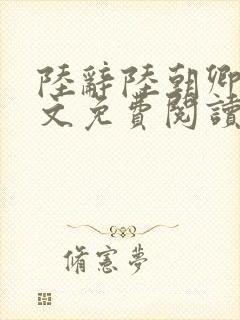 陸辭陸朝卿
文免費閱讀
脩憲夢